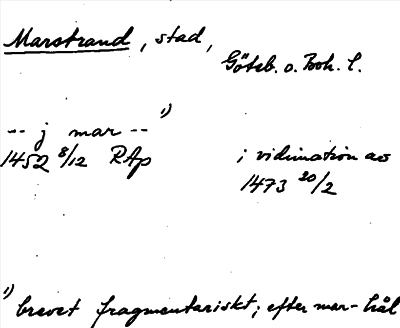 Marstrand, stad,
Göteb. o. Boh. l.
-- j mar -- 1)
1452 8/12 RAp i vidimation av
1473 20/2
1) brevet fragmentariskt; efter mar- hål